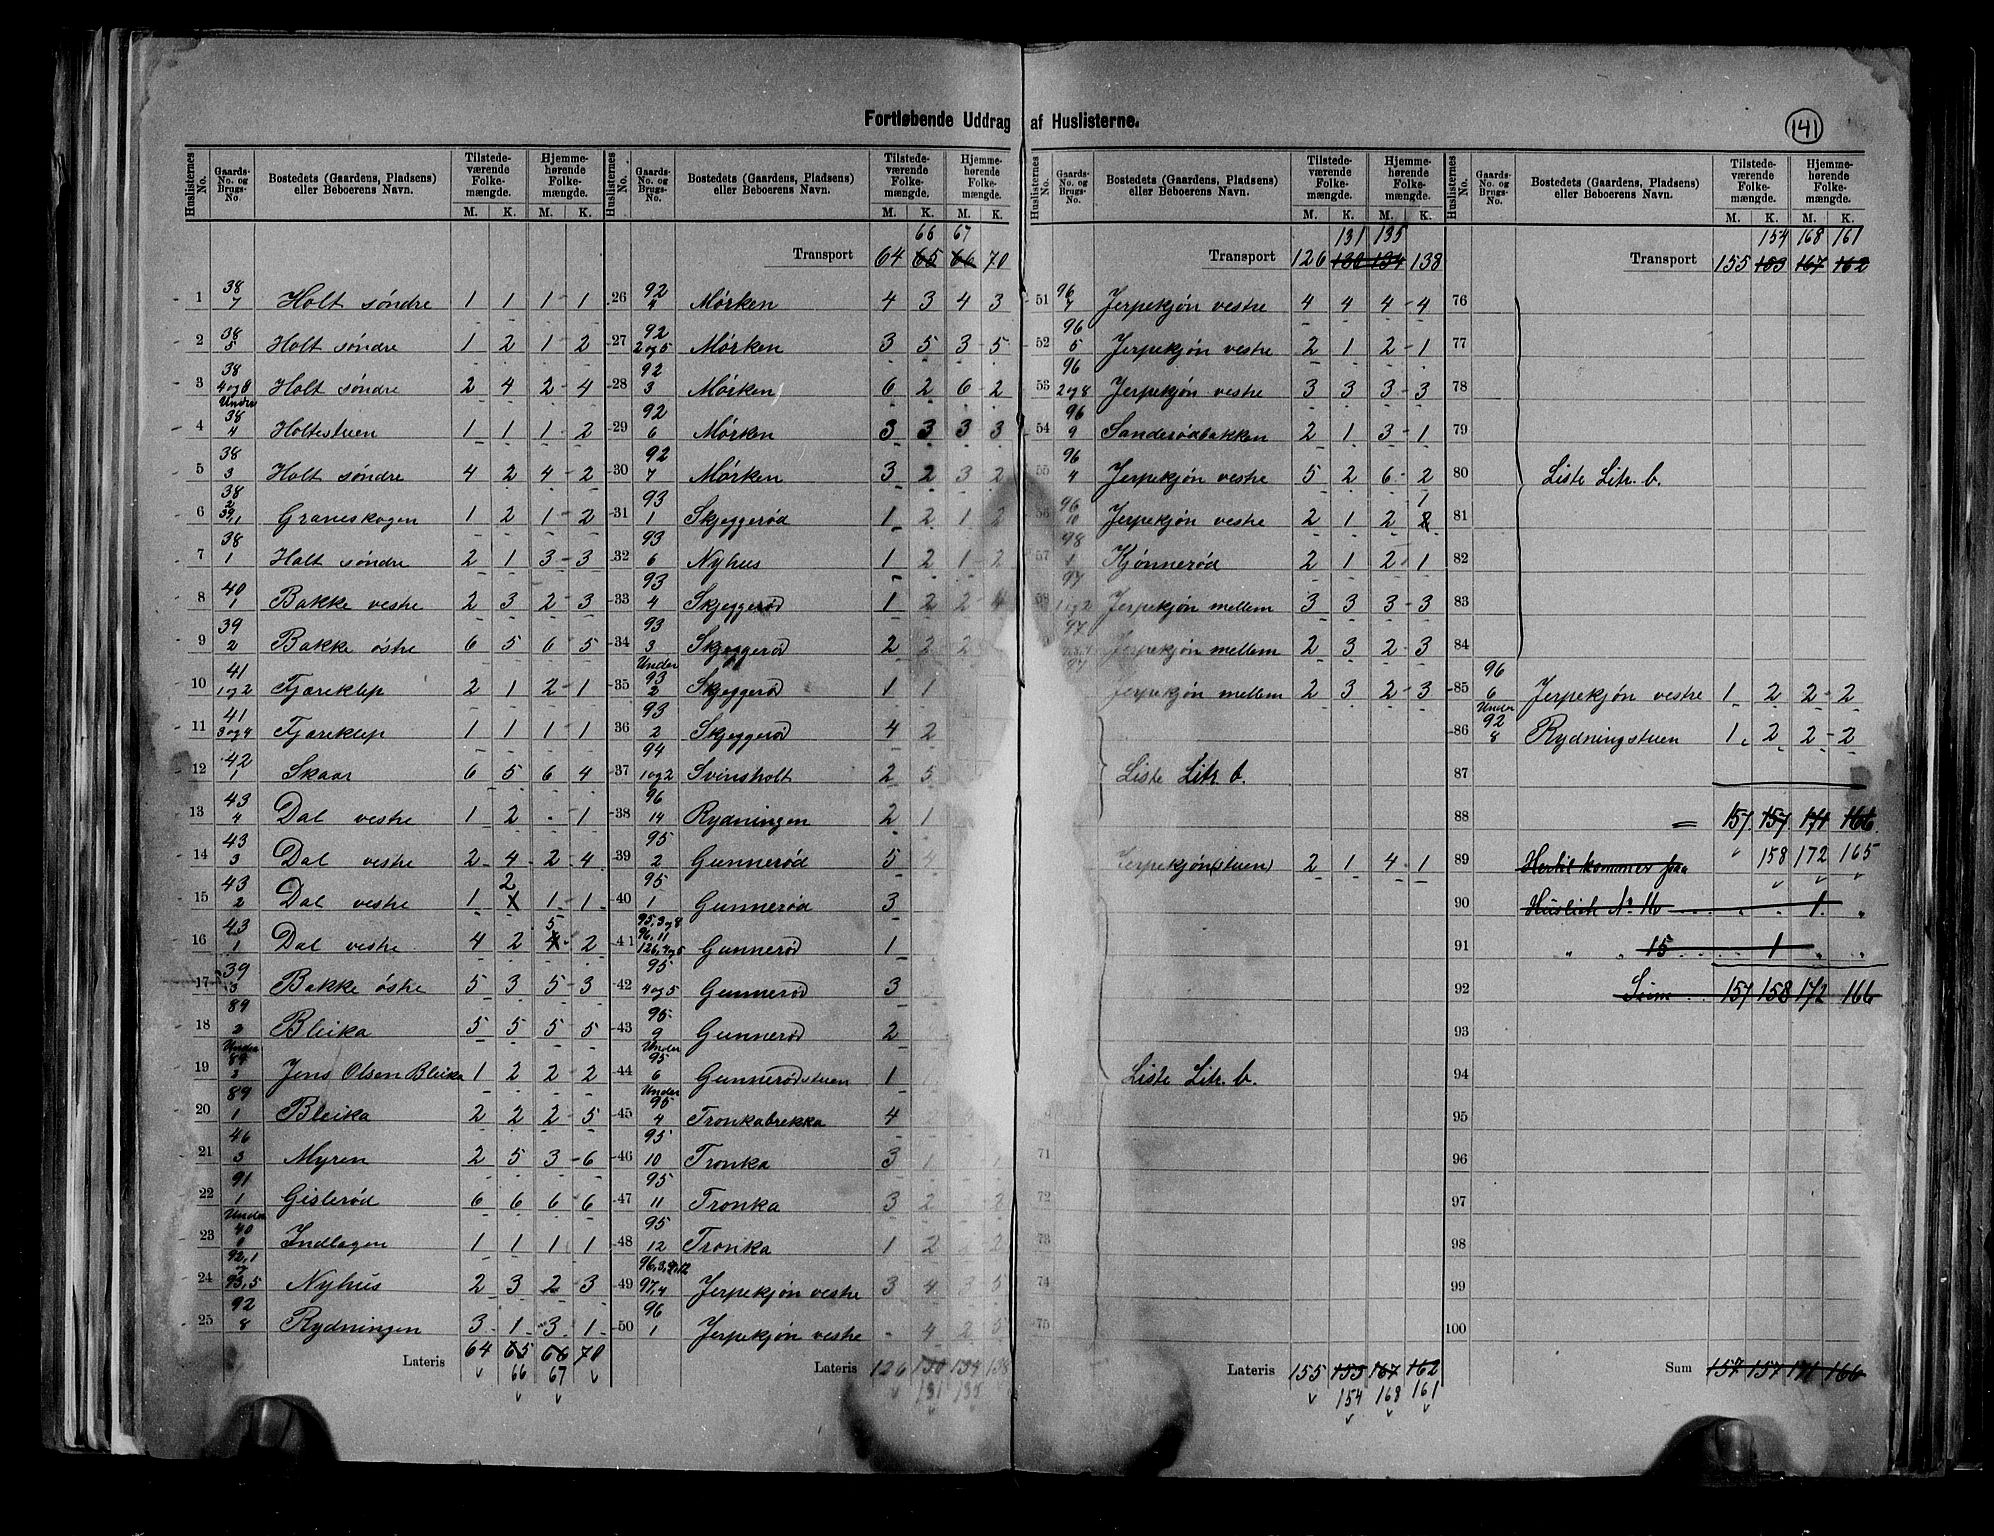 Fortløbende Uddrag af Huslisterne.
141
Huslisternes No. | Gaards-No. og Brugs-No. | Bostedets (Gaardens, Pladsens) eller Beboerens Navn. | Tilstedeværende Folkemængde. M. K. | Hjemmehørende Folkemængde. M. K.
1 38/7 Holt søndre 1 1 1 1
2 38/5 Holt søndre 1 2 1 2
3 38/4og8 Holt søndre 2 4 2 4
4 Under 38/4 Holtestuen 1 1 1 2
5 38/3 Holt søndre 4 2 4 2
6 38/2 39,1 Graneskogen 1 2 1 2
7 38/1 Holt søndre 2 1 3 3
8 40/1 Bakke vestre 2 3 2 3
9 39/2 Bakke østre 6 5 6 5
10 41/1og2 Fjæreklep 2 1 2 1
11 41/3og4 Fjæreklep 1 1 1 1
12 42/1 Skaar 6 5 6 4
13 43/4 Dal vestre 1 2 - 1
14 43/3 Dal vestre 2 4 2 4
15 43/2 Dal vestre 1 2 1 1
16 43/1 Dal vestre 4 2 5 2
17 39/3 Bakke østre 5 3 5 3
18 89/2 Bleika 5 5 5 5
19 Under 89/2 Jens Olsen Bleika 1 2 2 2
20 89/1 Bleika 2 2 2 5
21 46/3 Myren 2 5 3 6
22 91/1 Gislerød 6 6 6 6
23 Under 40/1 Indlagen 1 1 1 1
24 92,1 og 93,5 Nyhus 2 3 2 3
25 92/8 Rydningen 3 1 3 1
Lateris 64 65 66 70
66 67
66 67
Transport 64 65 66 70
26 92/4 Mørken 4 3 4 3
27 92/2og5 Mørken 3 5 3 5
28 92/3 Mørken 6 2 6 2
29 92/6 Mørken 3 3 3 3
30 92/7 Mørken 3 2 3 2
31 93/1 Skjeggerød 1 2 1 2
32 93/6 Nyhus 1 2 1 2
33 93/4 Skjeggerød 1 2 2 4
34 93/3 Skjeggerød 2 2 2
35 Under 93/2 Skjeggerød 1 1
36 93/2 Skjeggerød 4 2
37 94/1og2 Svinsholt 2 5
38 96/14 Rydningen 2 1
39 95/2 Gunnerød 5 4
40 95/1 Gunnerød 3
41 95,3og8 96,11 126,4og5 Gunnerød 1
42 95/4og5 Gunnerød 3
43 95/9 Gunnerød 2
44 Under 95/6 Gunnerødstuen 1
45 Under 95/4 Tronkabrekka 4 2
46 95/10 Tronka 3 1
47 95/11 Tronka 3 2
48 95/12 Tronka 1 2
49 97,4 Jerpekjøn vestre 3 4 3 5
50 96/1 Jerpekjøn vestre - 4 2 5
Lateris 126 130 134 138
131 135
131 135
Transport 126 130 134 138
51 96/7 Jerpekjøn vestre 4 4 4 4
52 96/5 Jerpekjøn vestre 2 1 2 1
53 96/2og8 Jerpekjøn vestre 3 3 3 3
54 96/9 Sanderødbakken 2 1 3 1
55 96/4 Jerpekjøn vestre 5 2 6 2
56 96/10 Jerpekjøn vestre 2 1 2 1
57 98/1 Kjønnerød 2 1 2 1
58 97/1og2 Jerpekjøn mellem 3 3 3 3
97 Jerpekjøn mellem 2 3 2 3
97 Jerpekjøn mellem 2 3 2 3
Liste Litr. b.
Jerpekjøn(stuen) 2 1 4 1
Liste Litr. b.
71
72
73
74
75
Lateris 155 153 167 162
154 168 161
154 168 161
Transport 155 153 167 162
76
77
78
79
80 Liste Litr. b.
81
82
83
84
85 96/6 Jerpekjøn vestre 1 2 2 2
86 Under 92/8 Rydningstuen 1 2 2 2
87
88 = 157 157 171 166
89 Hertil kommer paa " 158 172 165
90 Husliste No. 16 1 "
91 " " 15 1 " "
92 Sum 157 158 172 166
93
94
95
96
97
98
99
100
Sum 157 157 171 166